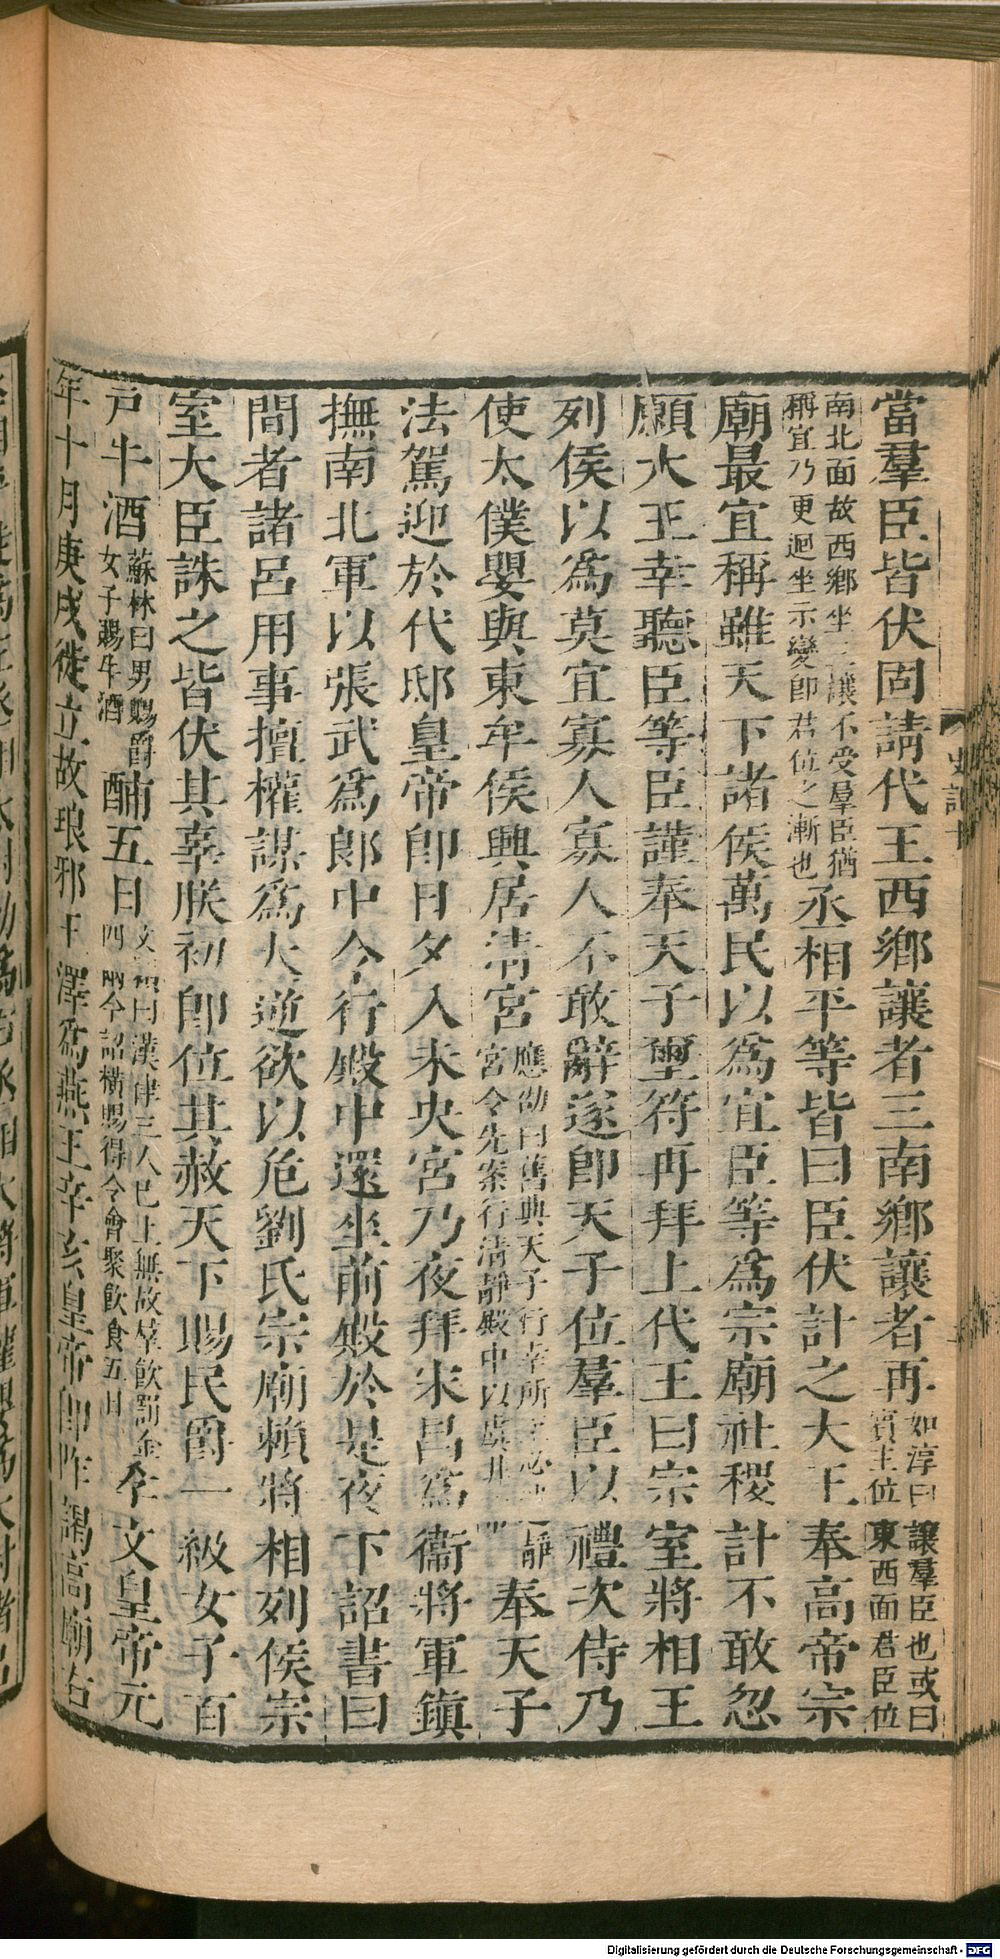 當羣臣皆伏固請代王西鄉讓者三南鄉讓者再如淳曰讓羣臣也或曰賓主位東西面君臣位
南北面故西鄉坐三讓不受羣臣猶稱宜乃更迴坐示變即君位之漸也丞相平等皆曰臣伏計之大王奉高帝宗
廟最宜稱雖天下諸侯萬民以爲宜臣等爲宗廟社稷計不敢忽
願大王幸聽臣等臣謹奉天子璽符再拜上代王曰宗室將相王
列侯以爲莫宜寡人寡人不敢辭遂即天子位羣臣以禮次侍乃
使太僕嬰與東牟侯興居清宮應劭曰舊典天子行幸所至必 靜宮令先案行清靜殿中以虞非 奉天子
法駕迎於代邸皇帝即日夕入未央宮乃夜拜宋昌爲衞將軍鎮
撫南北軍以張武爲郎中令行殿中還坐前殿於是夜下詔書曰
間者諸呂用事擅權謀爲大逆欲以危劉氏宗廟賴將相列侯宗
室大臣誅之皆伏其辜朕初即位其赦天下賜民爵一級女子百
戸牛酒蘇林曰男賜爵女子賜牛酒酺五日文 曰漢律三人已上無故羣飲罰金四兩今詔橫賜得令會聚飲食五日 文皇帝元
年十月庚戌徙立故琅邪王澤爲燕王辛亥皇帝即阼謁高廟右
史記十
Digitalisierung gefördert durch die Deutsche Forschungsgemeinschaft - DFG